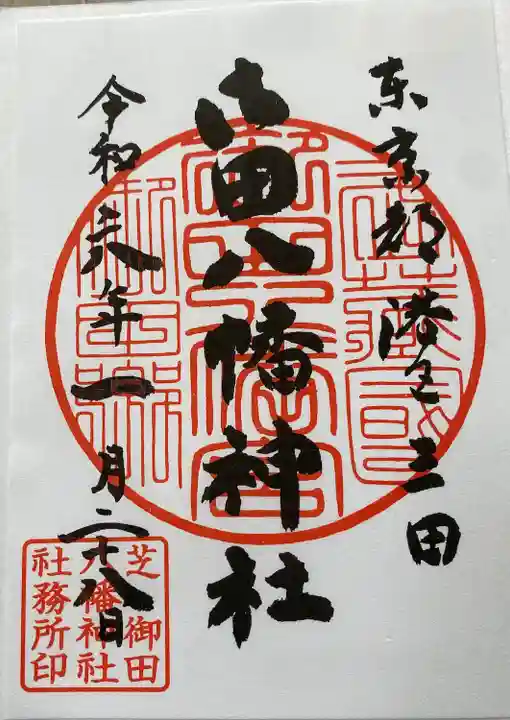 東京都港区三田
御田八幡神社
令和六年一月二十八日
芝御田
八幡神社
社務所印